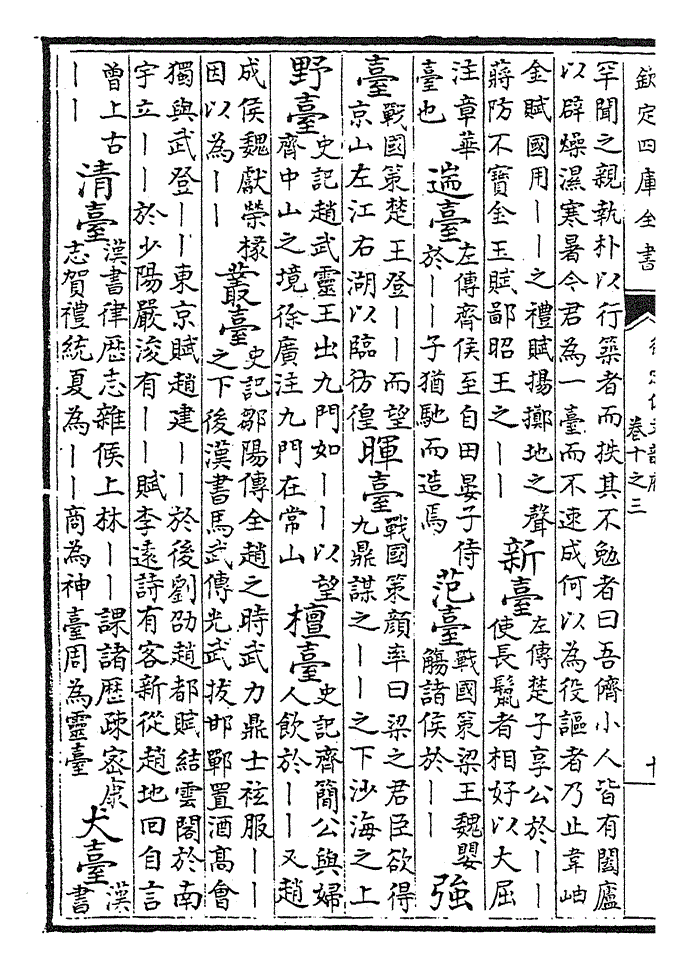 欽定四庫全書
卷十之三
罕聞之親執朴以行築者而抶其不勉者曰吾儕小人皆有闔廬
以辟燥濕寒暑今君為一臺而不速成何以為役謳者乃止韋岫
金賦國用丨丨之禮賦揚擲地之聲
蔣防不寶金玉賦鄙昭王之丨丨
新臺
左傳楚子享公於丨丨
使長鬛者相好以大屈
注章華
臺也
遄臺
左傳齊侯至自田晏子侍
於丨丨子猶馳而造焉
范臺
戰國策梁王魏嬰
觴諸侯於丨丨
強
臺
戰國策楚王登丨丨而望
京山左江右湖以臨彷徨
暉臺
戰國策顔率曰梁之君臣欲得
九鼎謀之丨丨之下沙海之上
野臺
史記趙武靈王出九門如丨丨以望
齊中山之境徐廣注九門在常山
檀臺
史記齊簡公與婦
人飲於丨丨又趙
成侯魏獻榮椽
因以為丨丨
叢臺
史記鄒陽傳全趙之時武力鼎士袨服丨丨
之下後漢書馬武傳光武拔邯鄲置酒髙會
獨與武登丨丨東京賦趙建丨丨於後劉劭趙都賦結雲閣於南
宇立丨丨於少陽嚴浚有丨丨賦李逺詩有客新從趙地回自言
曾上古
丨丨
清臺
漢書律歴志雜候上林丨丨課諸歴疎宻康
志賀禮統夏為丨丨商為神臺周為靈臺
犬臺
漢
書